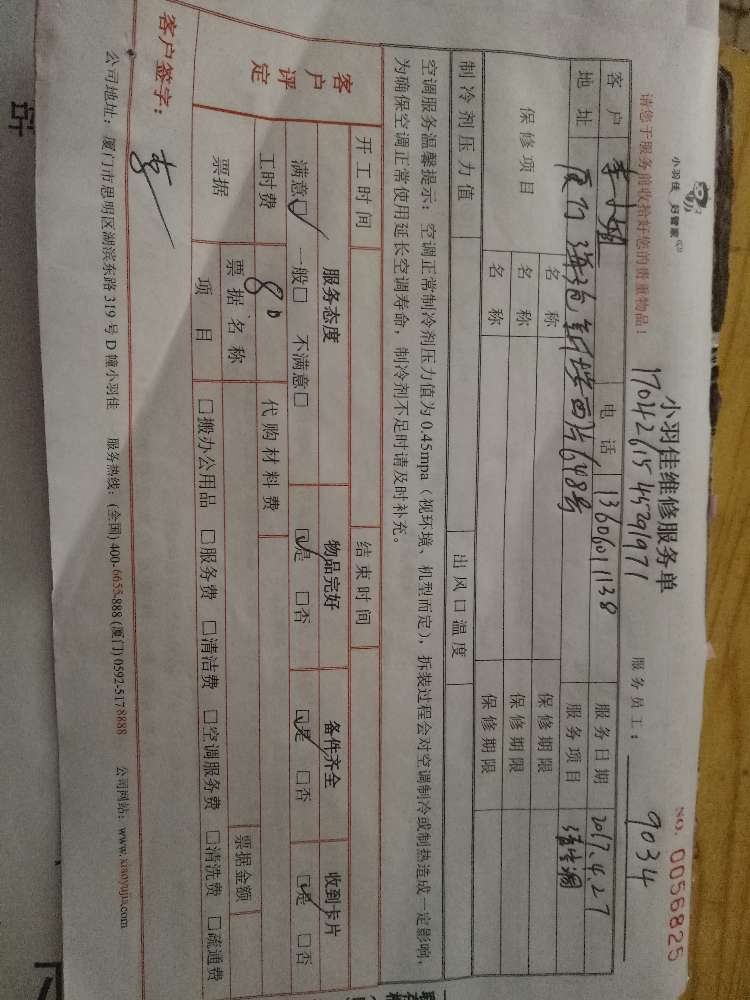 小羽佳 好管家
小羽佳维修服务单
NO. 0056825
请您于服务前收拾好您的贵重物品！
1704261545291971
服务员工： 9034
客户 李小姐 电话 13606011138 服务日期 2017.4.27
地址 厦门 海沧新楼西片648号 服务项目 清空调
保修项目 名称 保修期限
名称 保修期限
名称 保修期限
制冷剂压力值 出风口温度
空调服务温馨提示：空调正常制冷剂压力值为0.45mpa（视环境、机型而定），拆装过程会对空调制冷或制热造成一定影响，
为确保空调正常使用延长空调寿命，制冷剂不足时请及时补充。
开工时间 结束时间
客户评定 服务态度 物品完好 备件齐全 收到卡片
满意☑ 一般□ 不满意□ ☑是 □否 ☑是 □否 ☑是 □否
工时费 80 代购材料费
票据 票据名称 票据金额
项目 □搬办公用品 □服务费 □清洁费 □空调服务费 □清洗费 □疏通费
客户签字： 李
公司地址：厦门市思明区湖滨东路319号D幢小羽佳 服务热线：(全国)400-6655-888 (厦门)0592-5178888 公司网站：www.xiaoyujia.com